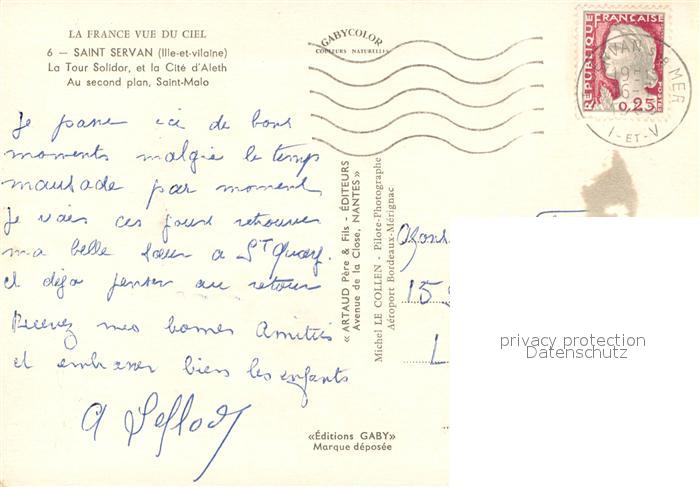 LA FRANCE VUE DU CIEL
6 — SAINT SERVAN (Ille-et-vilaine)
La Tour Solidor, et la Cité d'Aleth
Au second plan, Saint-Malo
GABYCOLOR
COULEURS NATURELLES
REPUBLIQUE FRANÇAISE
POSTES
0,25
MER
I-ET-V
Je passe ici de bons
moments malgré le temps
maussade par moment
Je vais ces jours retrouver
ma belle sœur à St Quay.
et déjà penser au retour
Recevez mes bonnes Amitiés
et embrasser bien les enfants
«ARTAUD Père & Fils - ÉDITEURS
Avenue de la Close, NANTES»
Michel LE COLLEN - Pilote-Photographe
Aéroport Bordeaux-Mérignac
15
L
privacy protection
Datenschutz
«Éditions GABY»
Marque déposée